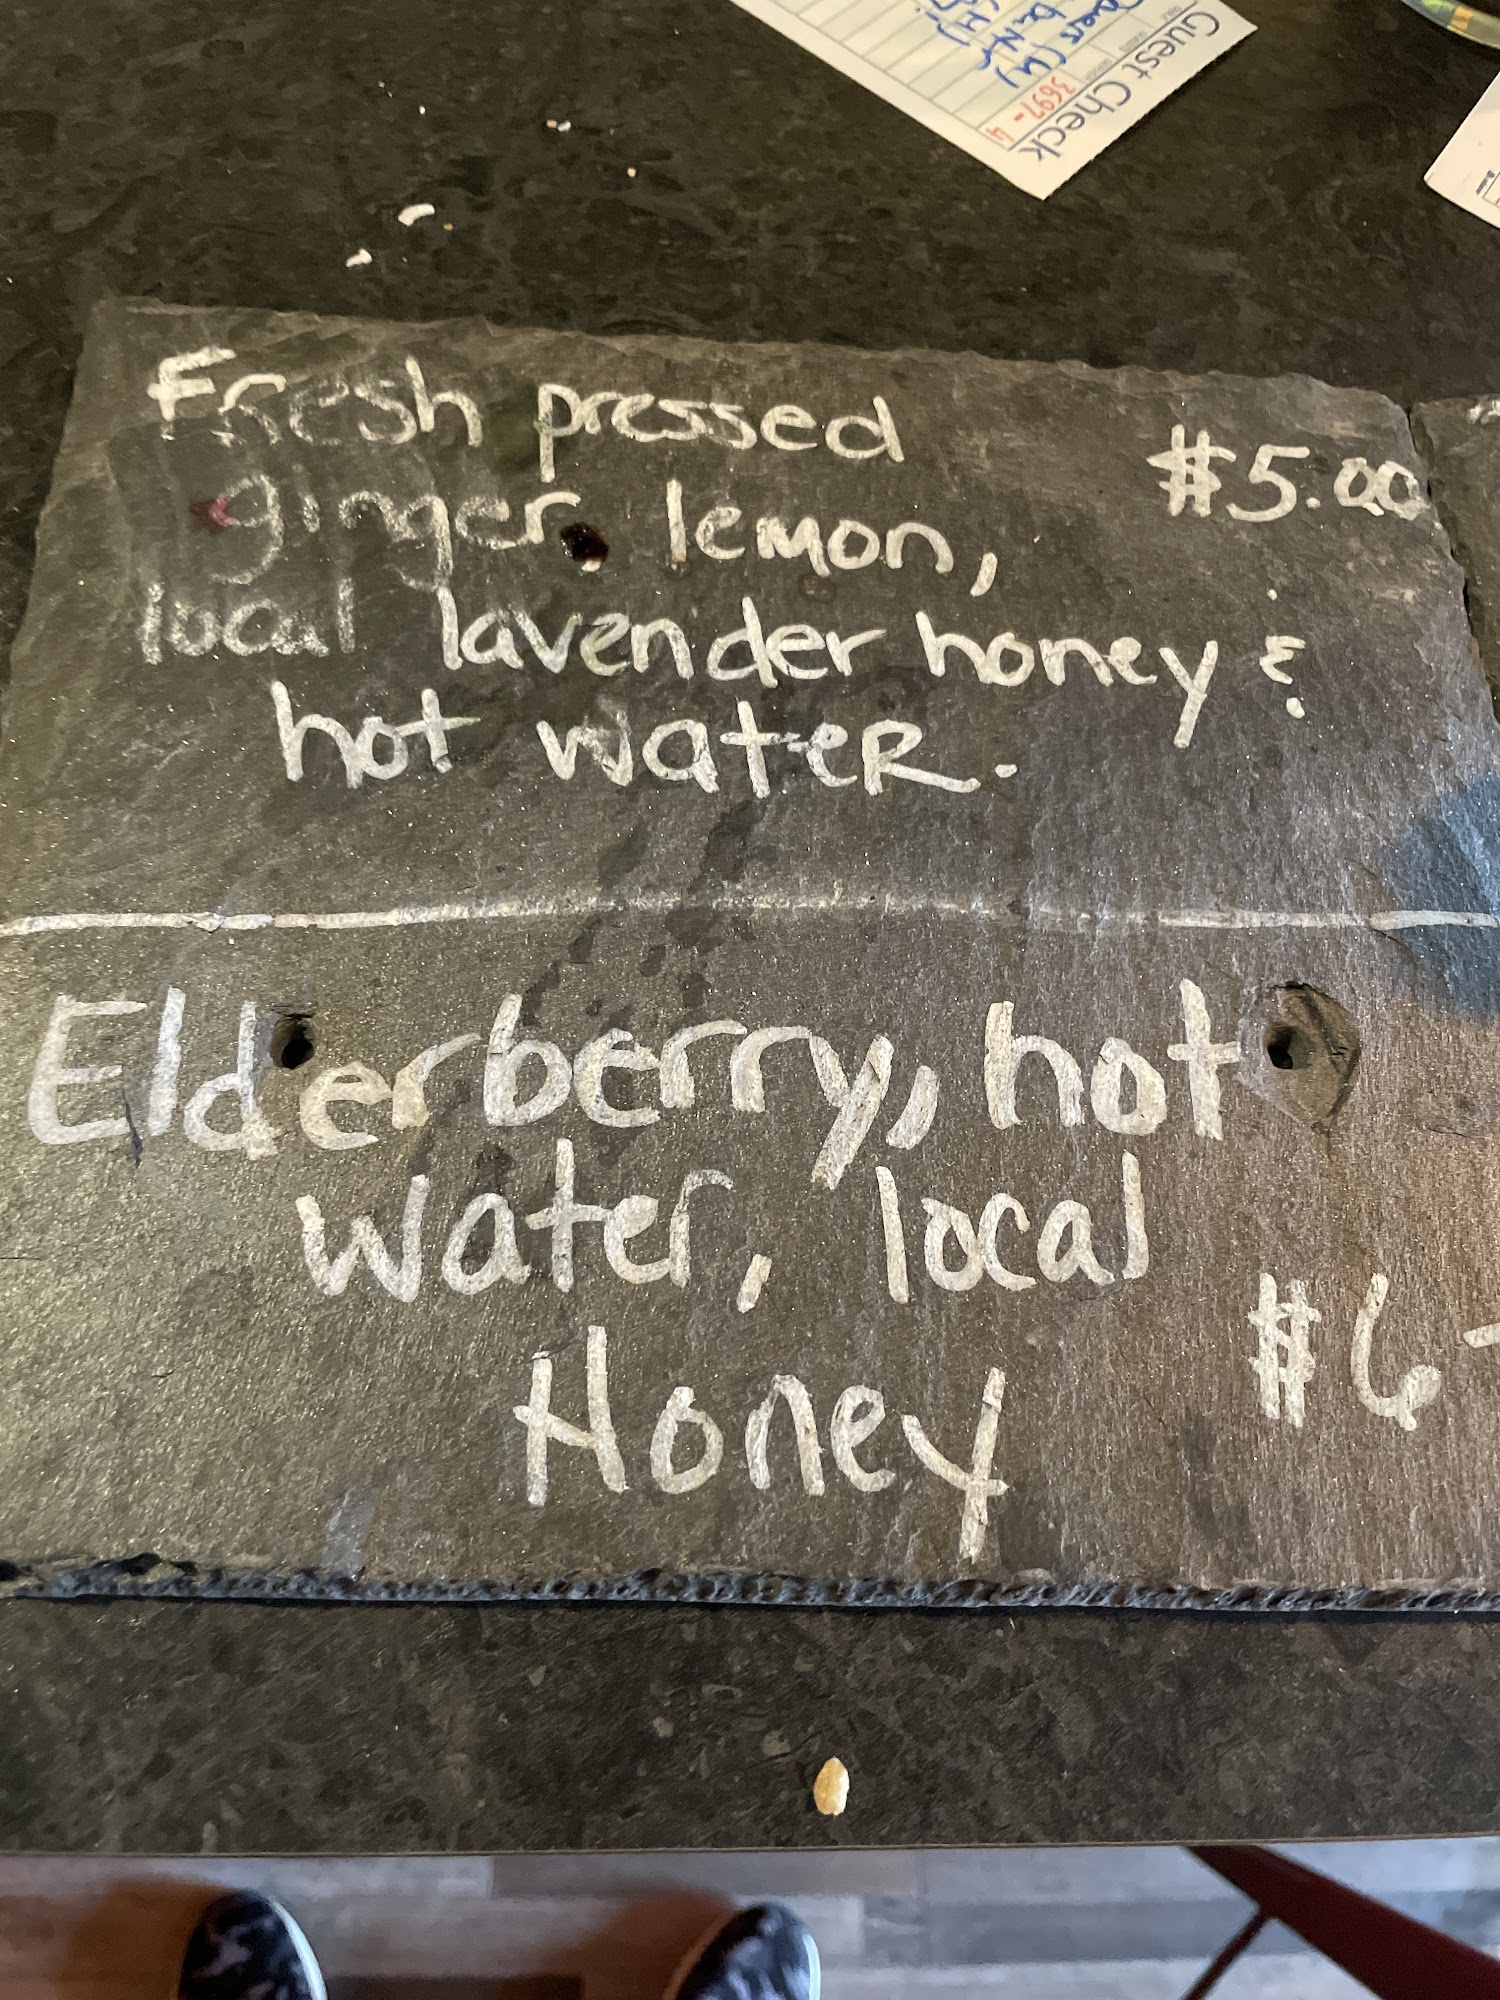 Guest Check
3697-4
Fresh pressed
$5.00
ginger lemon,
local lavender honey &
hot wateR.
Elderberry, hot
water, local
$6-
Honey